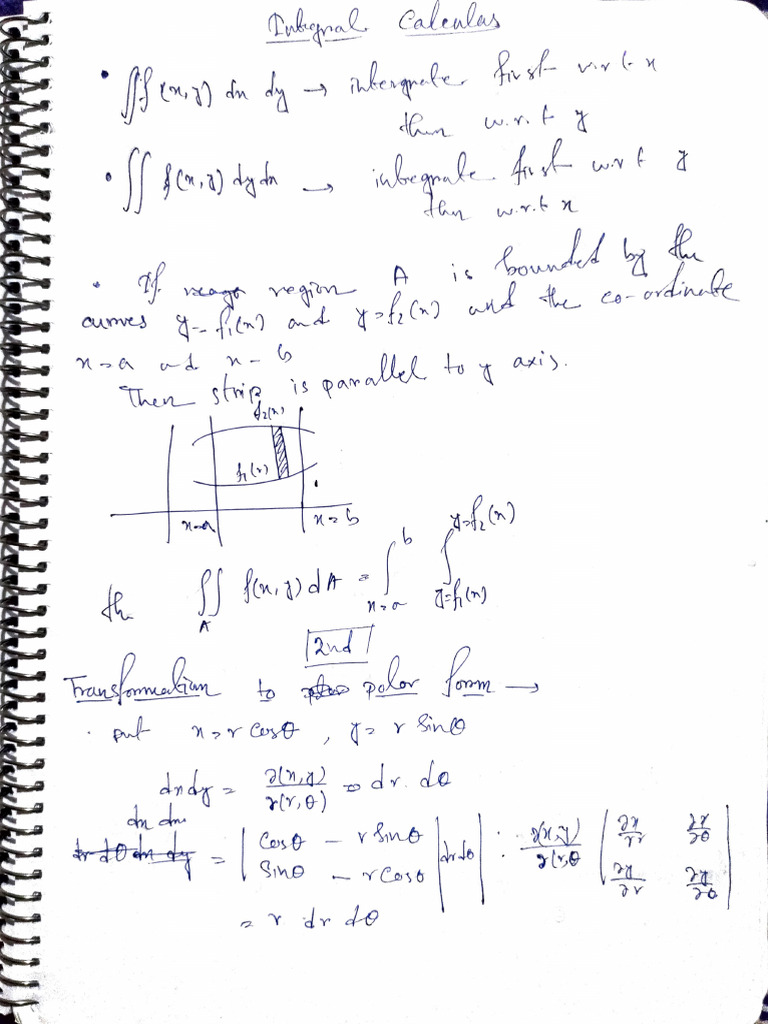 Integral Calculas
• ∬f(x,y) dx dy → intergrate first w.r.t x
then w.r.t y
• ∬ f(x,y) dydx → integrate first w.r.t y
then w.r.t x
• If region A is bounded by the
curves y=f₁(x) and y=f₂(x) and the co-ordinate
x=a and x=b
Then strip is parallel to y axis.
f₂(x)
f₁(x)
x=a x=b
the ∬_A f(x,y) dA = ∫_{x=a}^{b} ∫_{y=f₁(x)}^{y=f₂(x)}
2nd
Transformation to polar form →
• put x=r cosθ, y= r sinθ
dxdy = ∂(x,y)/∂(r,θ) = dr. dθ
dx dx
dr dθ dx dy = |cosθ - r sinθ| drdθ | : ∂(x,y)/∂(r,θ |∂x/∂r ∂x/∂θ|
|sinθ - r cosθ| |∂y/∂r ∂y/∂θ|
= r dr dθ